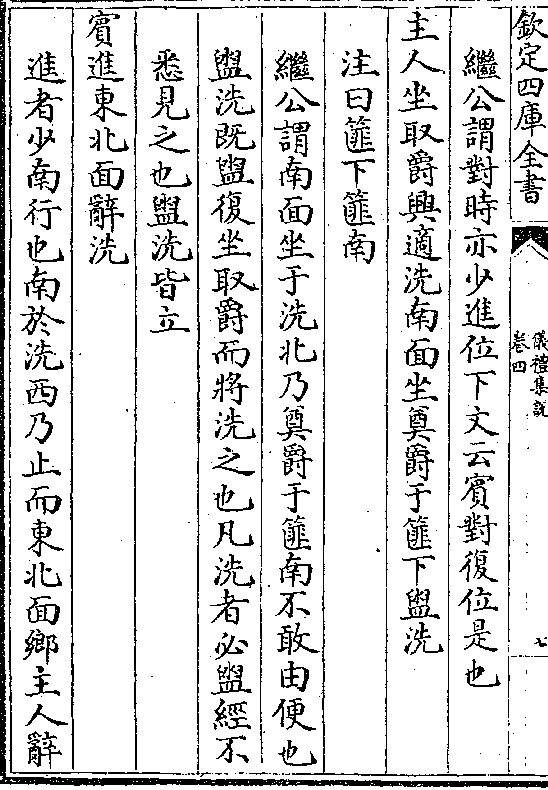 欽定四庫全書
儀禮集說
卷四
七
繼公謂對時亦少進位下文云賓對復位是也
主人坐取爵興適洗南面坐奠爵于篚下盥洗
注曰篚下篚南
繼公謂南面坐于洗北乃奠爵于篚南不敢由便也
盥洗既盥復坐取爵而將洗之也凡洗者必盥經不
悉見之也盥洗皆立
賓進東北面辭洗
進者少南行也南於洗西乃止而東北面鄉主人辭